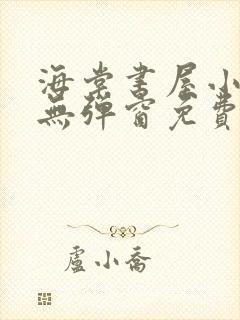 海棠書屋小
無彈窗免費
盧小喬